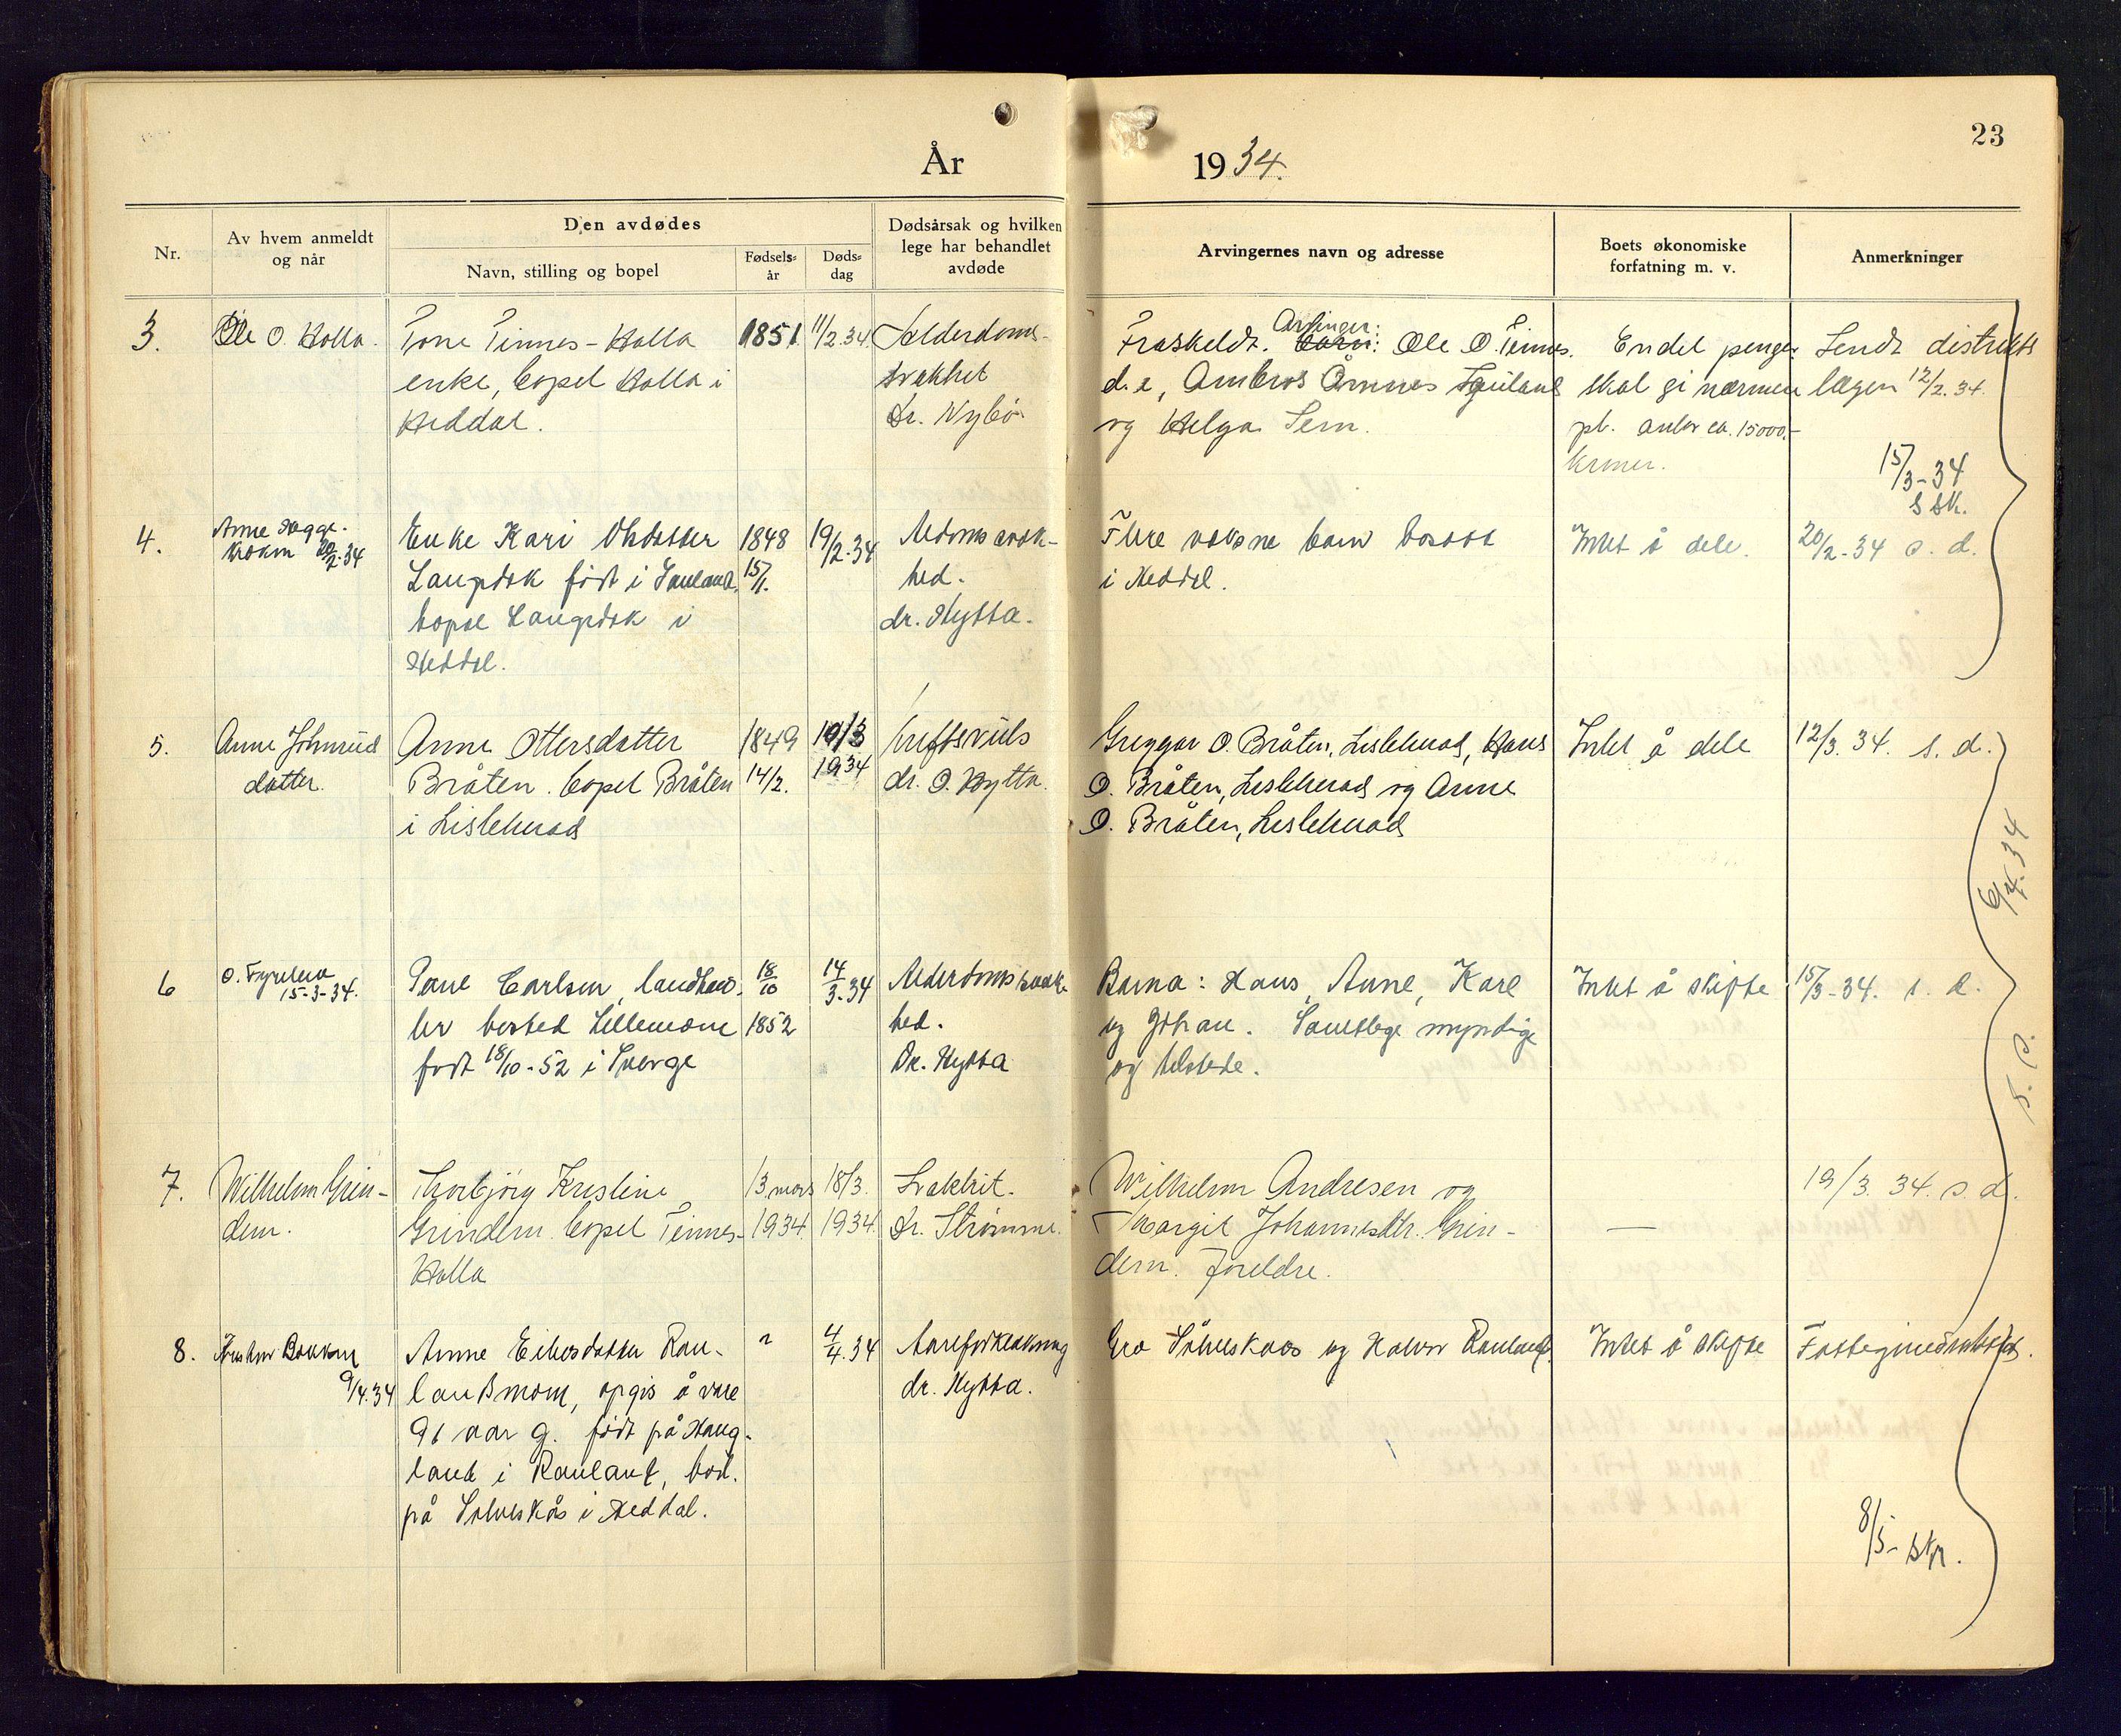 23
År 1934.
Nr.
Av hvem anmeldt
og når
Den avdødes
Navn, stilling og bopel
Fødsels-
år
Døds-
dag
Dødsårsak og hvilken
lege har behandlet
avdøde
Arvingernes navn og adresse
Boets økonomiske
forfatning m. v.
Anmerkninger
3.
Ole O. Holla.
Tone Tinnes-Holla
enke, bopel Holla i
Heddal.
1851.
11/2.34.
Alderdoms-
svakhet
Dr. Nybø
Fraskeldt. Arvinger: Ole O. Tinnes.
d.e, Ambros Åmnes Sauland
og Helga Sem.
Endel penger
skal gi nærmere
pl. anlav ca. 15000.-
kroner.
Sendt distrikts
lægen 12/2.34.
15/3-34
4.
Anne
20/2.34
Enke Kari Olsdatter
Langdok født i Sauland,
bopæl Langdok i
Heddal.
1848
15/1.
19/2.34
hed.
dr. Hytta.
Flere voksne barn bosatt
i Heddal.
Intet å dele.
20/2-34 s. d.
5.
Anne Johnsrud
datter.
Anne Ottersdatter
Bråten. bopel Bråten
i Lisleherad
1849
14/2.
10/3
1934
kreftsvuls
dr. O. Hytta.
Greggar O. Bråten, Lisleherad, Hans
O. Bråten, Lisleherad og Anne
O. Bråten, Lisleherad
Intet å dele
12/3. 34. s. d.
9/4.34
6
O.
15-3-34.
Carlsen, landhand-
ler bosted Lillemoen
født 18/10-52 i Sverge
18/10
1852
14/3.34
Alderdomssvak-
hed.
Dr. Hytta
Barna: Hans, Anne, Karl
og Johan. Samtlege myndige
og tilstede.
Intet å skifte
15/3-34. s. d.
7.
Wilhelm Grin-
dem.
Thorbjørg Kristine
Grindem. bopel Tinnes-
Holla
13. mars
1934.
18/3.
1934.
Svakhet.
Dr. Strømme.
Wilhelm Andresen og
Margit Johannesdtr. Grin-
dem. foreldre.
—
19/3. 34. s. d.
8.
9/4.34
Anne Eilevsdatter Rau-
landsmoen, opgis å vere
91 aar g. født på Haug-
land i Rauland, bod.
på Sølveskås i Heddal.
4/4.34
Aareforkalkning
dr. Hytta.
Gro Sølveskaas og Halvor Rauland.
Intet å skifte
8/5-